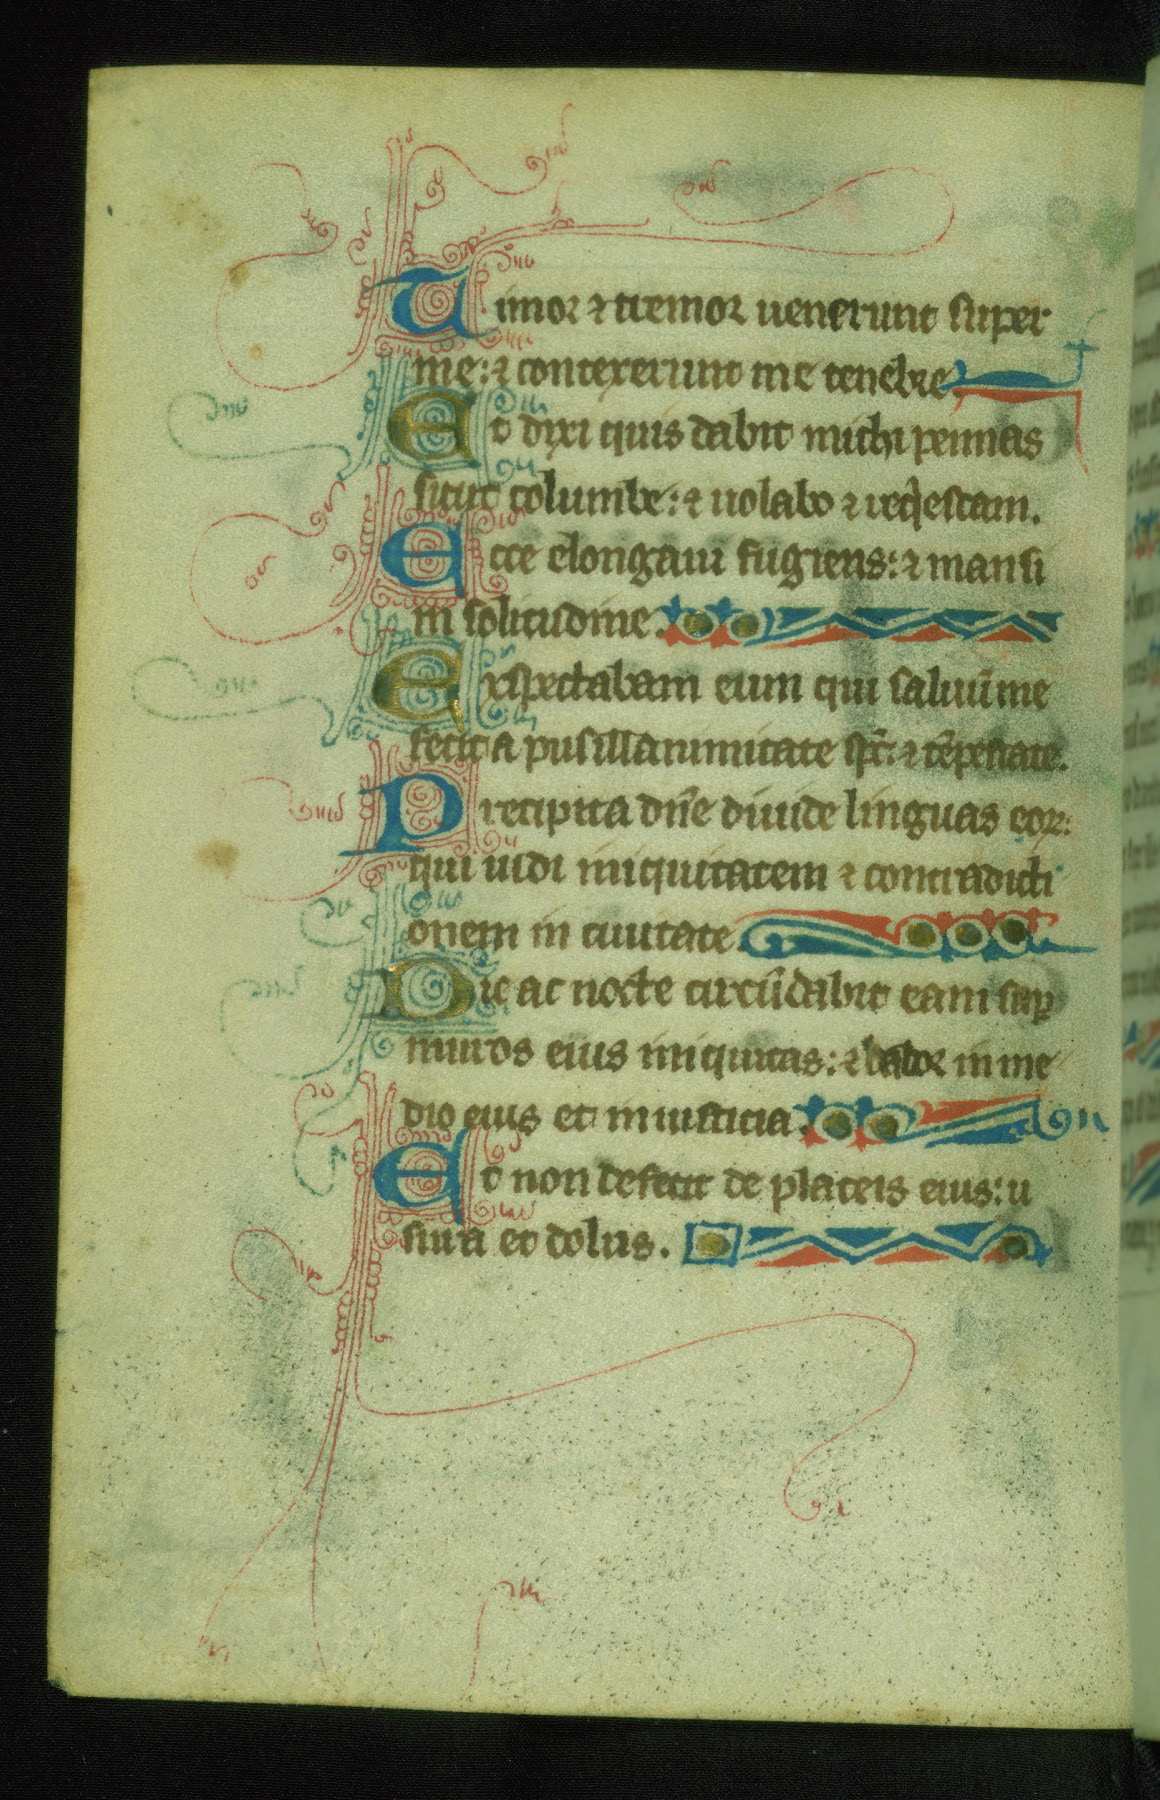 Timor ⁊ tremor uenerunt super
me: ⁊ contexerunt me tenebre.
Et dixi quis dabit michi pennas
sicut columbe: ⁊ uolabo ⁊ reqͥescam.
Ecce elongaui fugiens: ⁊ mansi
in solitudine.
Exspectabam eum qui saluū me
fecit a pusillanimitate sp̄c ⁊ tēpestate.
Precipita dn̄e diuide linguas eoꝝ:
qui uidi iniquitatem ⁊ contradicti
onem in ciuitate.
Die ac nocte circūdabit eam suꝑ
muros eius iniquitas: ⁊ labor in me
dio eius et iniusticia.
Et non defecit de plateis eius: u
sura et dolus.